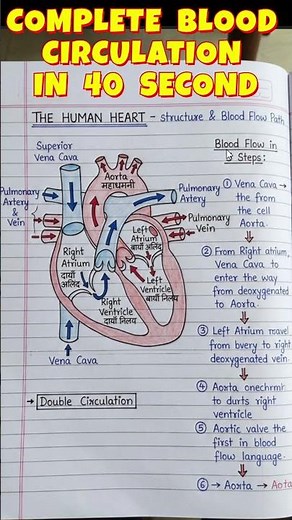 COMPLETE BLOOD
CIRCULATION
IN 40 SECOND
THE HUMAN HEART - structure & Blood Flow Path
Superior
Vena Cava
Aorta
महाधमनी
Pulmonary
Artery
& Vein
Pulmonary
Artery
Pulmonary
Vein
Left
Atrium
बायाँ अलिंद
Right
Atrium
दायाँ
अलिंद
Left
Ventricle
बायाँ निलय
Right
Ventricle
दायाँ निलय
Vena Cava
→ Double Circulation
Blood Flow in
Steps:
① Vena Cava →
the from
the cell
Aorta.
② From Right atrium,
Vena Cava to
enter the way
from deoxygenated
to Aorta.
③ Left Atrium travel
from bvery to right
deoxygenated vein.
④ Aorta onechrmt
to durts right
ventricle
⑤ Aortic valve the
first in blood
flow language.
⑥ → Aorta → Aota